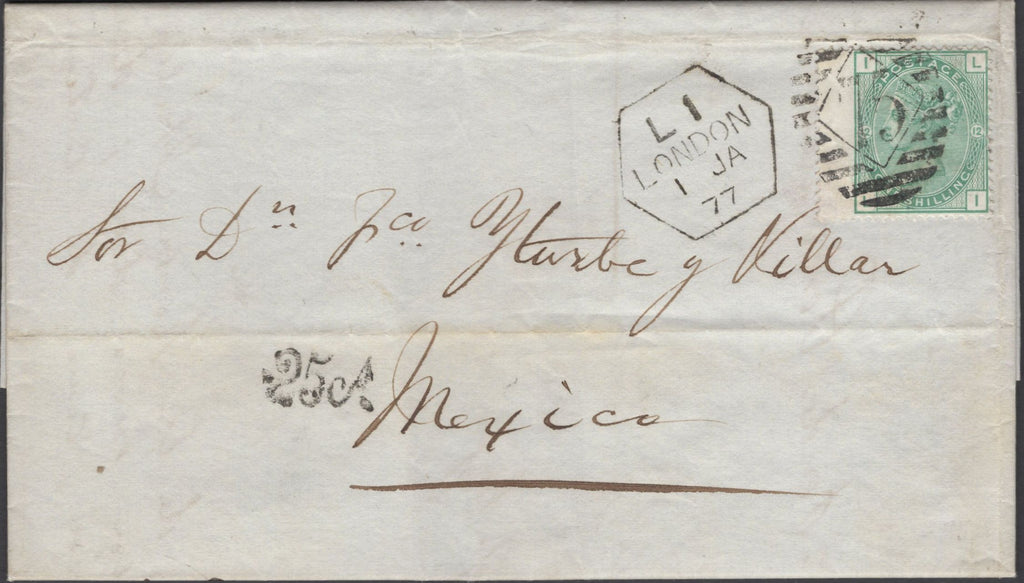 L 1
LONDON
1 JA
77
I L
POSTAGE
12
SHILLING
I
Sor Dn Fco Yturbe y Villar
25cs
Mexico